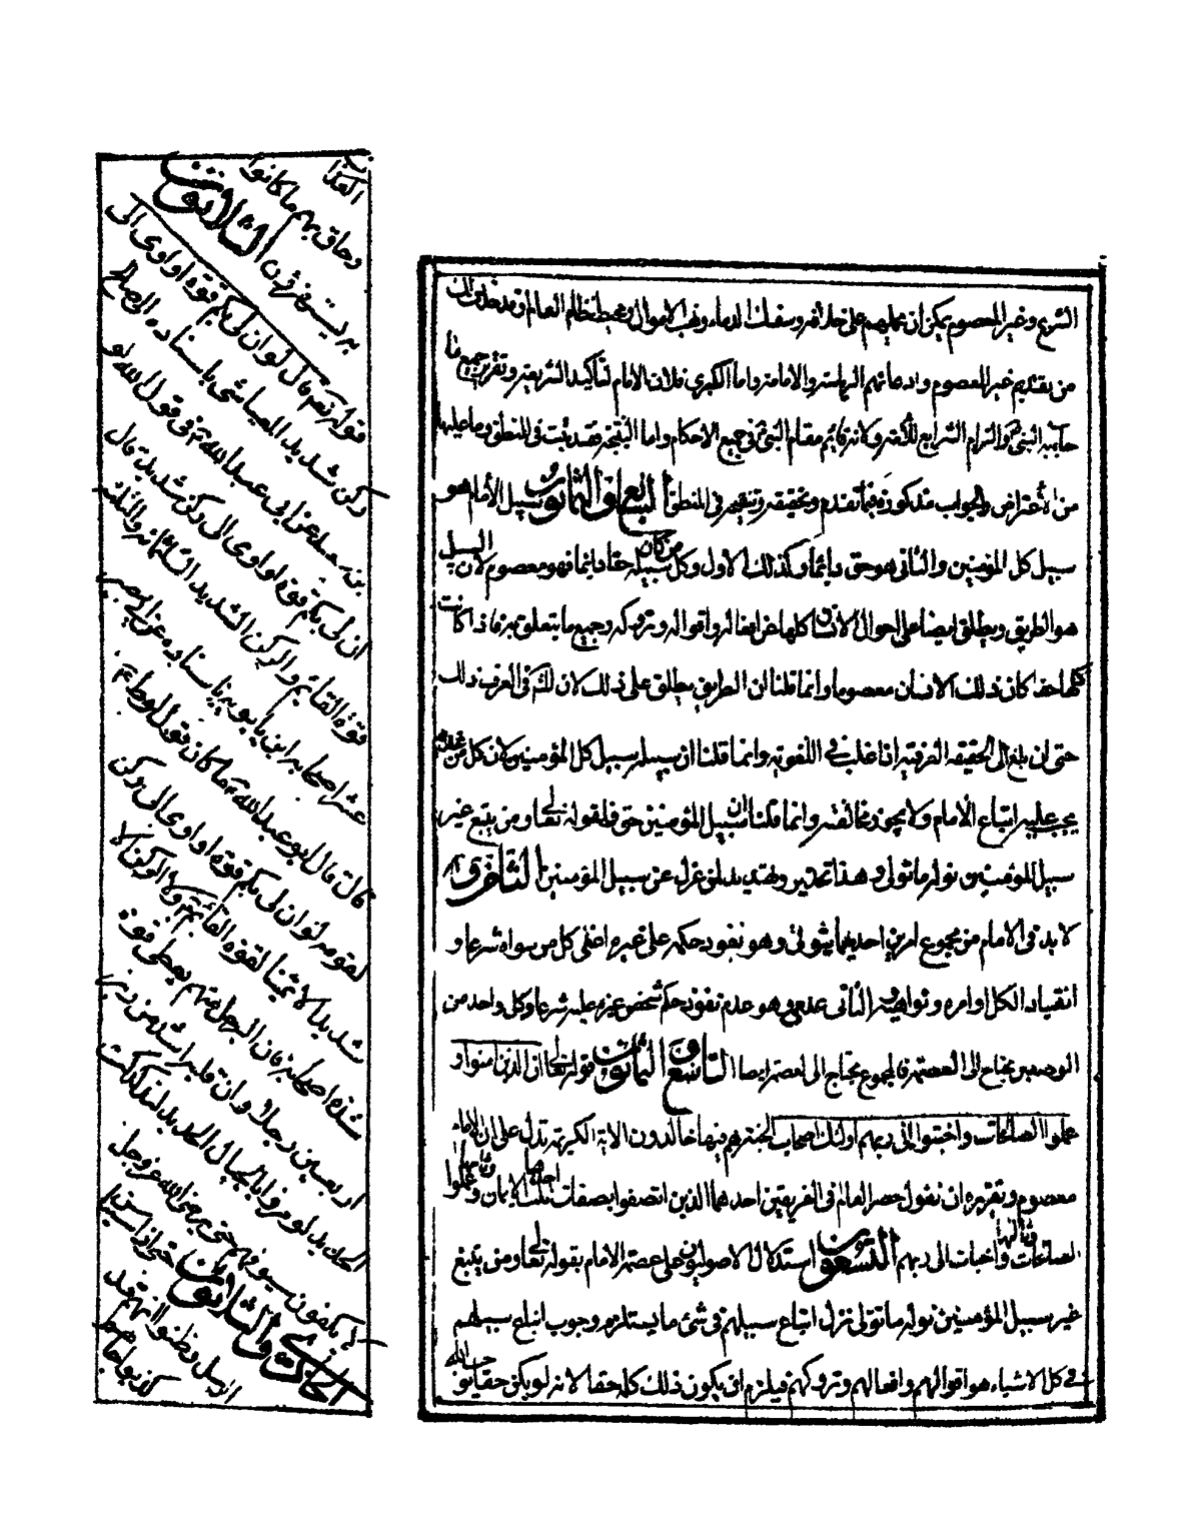 الشرع وغير المعصوم يمكن ان يحملهم على خلافه وسفك الدماء ونهب الاموال ويخبط نظام العالم وقد
من تقديم غير المعصوم وادعائهم الرياسة والامامة واما الكبرى فلان الامام لتأكيد الشريعة وتقرير جميع ما
جاء به النبي والزام الشرايع للأمة ولانه قائم مقام النبي في جميع الاحكام واما النتيجة فقد ثبت في المنطق وما عليها
من الأعتراض والجواب مذكورة فيما تقدم وتحقيقه وتنقيحه في المنطق السابع والثمانون سبيل الأمام هو
سبيل كل المؤمنين والثاني هو حق دائما وكذلك الاول وكل من كان سبيله حقا دائما فهو معصوم لان السبيل
هو الطريق ويطلق ايضا على احوال الانسان كلها من افعاله واقواله وتروكه وجميع ما يتعلق به فاذا كانت
كلها حقا كان ذلك الانسان معصوما وانما قلنا ان الطريق يطلق على ذلك لان في العرف ذلك
حتى ان بلغ الى الحقيقة العرفية اذا غلب في اللغوية وانما قلنا ان سبيله سبيل كل المؤمنين لان كل من عداه
يجب عليه اتباع الأمام ولا يجوز مخالفته وانما قلنا ان سبيل المؤمنين حق فلقوله تعا ومن يتبع غير
سبيل المؤمنين نوله ما تولى وهذا تحذير وتهديد لمن عدل عن سبيل المؤمنين الثامن ف
لا بد في الأمام من مجموع امرين احدهما ثبوتي وهو نفوذ حكمه على غيره اعني كل من سواه شرعا و
انقياد الكل اوامره ونواهيه الثاني عدمي وهو عدم نفوذ حكم شخص غيره عليه شرعا وكل واحد من
الوصفين يحتاج الى العصمة فالمجموع يحتاج الى العصمة ايضا التاسع والثمانون قوله تعا ان الذين امنوا و
عملوا الصالحات واخبتوا الى ربهم اولئك اصحاب الجنة هم فيها خالدون الاية الكريمة تدل على ان الامام
معصوم وتقريره ان نقول حصر العالم في الفريقين احدهما الذين اتصفوا بصفات ثلث احدها الايمان وثانيها وعملوا
الصالحات وثالثها واخبات الى ربهم التسعون استدلال الاصوليون على عصمة الامام بقوله تعا ومن يتبع
غير سبيل المؤمنين نوله ما تولى نزل اتباع سبيلهم في شئ ما يستلزم وجوب اتباع سبيلهم
في كل الاشياء هو اقوالهم وافعالهم وتروكهم فيلزم ان يكون ذلك كله حقا لانه لو لم يكن حقا
العذاب
وحاق بهم ما كانوا
به يستهزؤن الثلاثون
قوله تعم قال لو ان لى بكم قوة او اوى الى
ركن شديد العياشى باسناده الى صالح
بن سعد عن ابى عبد الله ع فى قول الله لو
ان لى بكم قوة او اوى الى ركن شديد قال
قوة القائم والركن الشديد الثلثمائة والثلثة
عشر اصحابه ابن بابويه باسناده عن ابى بصير
قال قال ابو عبد الله ع ما كان قول لوط ع
لقومه لو ان لى بكم قوة او اوى الى ركن
شديد الا تمنيا لقوة القائم ع ولا الركن الا
شدة اصحابه فان الرجل منهم يعطى قوة
اربعين رجلا وان قلبه اشد من زبر
الحديد لو مروا بالجبال الحديد لتدكدكت
لا يكفون سيوفهم حتى يرضى الله عز وجل
الحادى والثلاثون حتى اذا استيأس
الرسل وظنوا انهم قد
كذبوا جاءهم